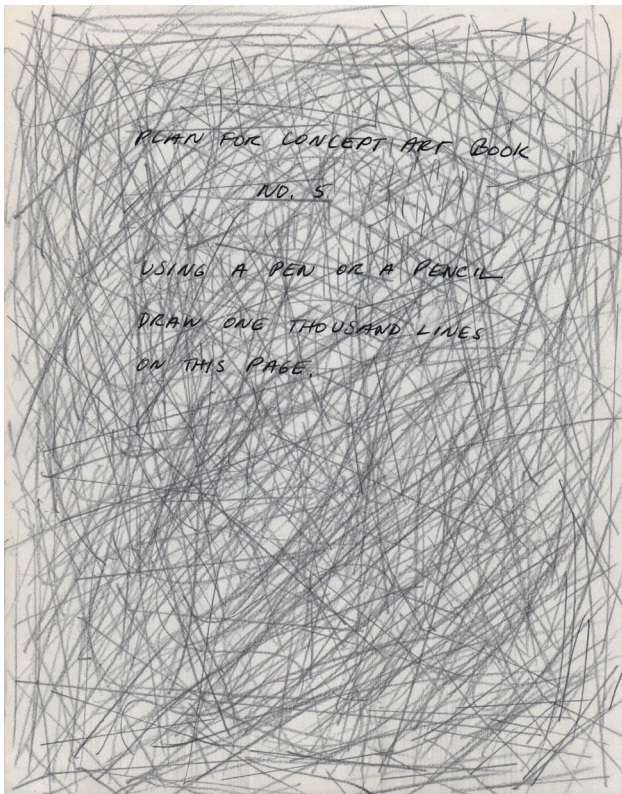 PLAN FOR CONCEPT ART BOOK
NO. 5
USING A PEN OR A PENCIL
DRAW ONE THOUSAND LINES
ON THIS PAGE.